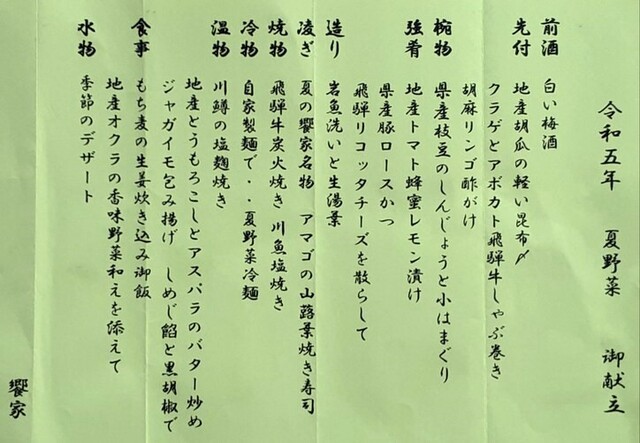 令和五年　夏野菜　御献立
前酒　白い梅酒
先付　地産胡瓜の軽い昆布〆
クラゲとアボカド飛騨牛しゃぶ巻き
胡麻リンゴ酢がけ
椀物　県産枝豆のしんじょうと小はまぐり
強肴　地産トマト蜂蜜レモン漬け
県産豚ロースかつ
飛騨リコッタチーズを散らして
造り　岩魚洗いと生湯葉
凌ぎ　夏の饗家名物　アマゴの山蕗葉焼き寿司
焼物　飛騨牛炭火焼き　川魚塩焼き
冷物　自家製麺で・・夏野菜冷麺
温物　川鱒の塩麹焼き
地産とうもろこしとアスパラのバター炒め
ジャガイモ包み揚げ　しめじ餡と黒胡椒で
食事　もち麦の生姜炊き込み御飯
地産オクラの香味野菜和えを添えて
水物　季節のデザート
饗家